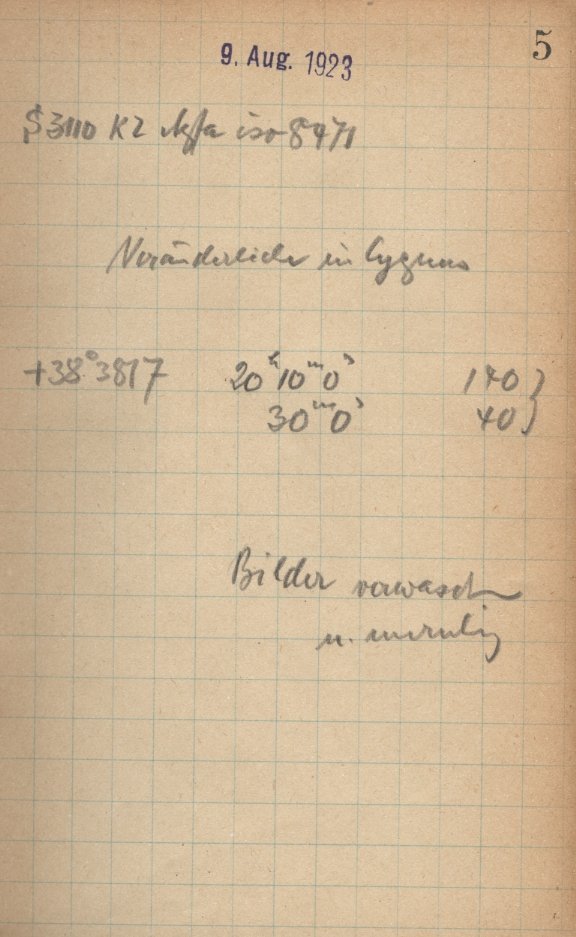 9. Aug. 1923
5
S 3110 K2 Agfa iso 8471
Veränderliche in Cygnus
+38° 3817 20ʰ 10ᵐ 0ˢ 140 }
30ᵐ 0ˢ 40 }
Bilder verwaschen
u. unruhig